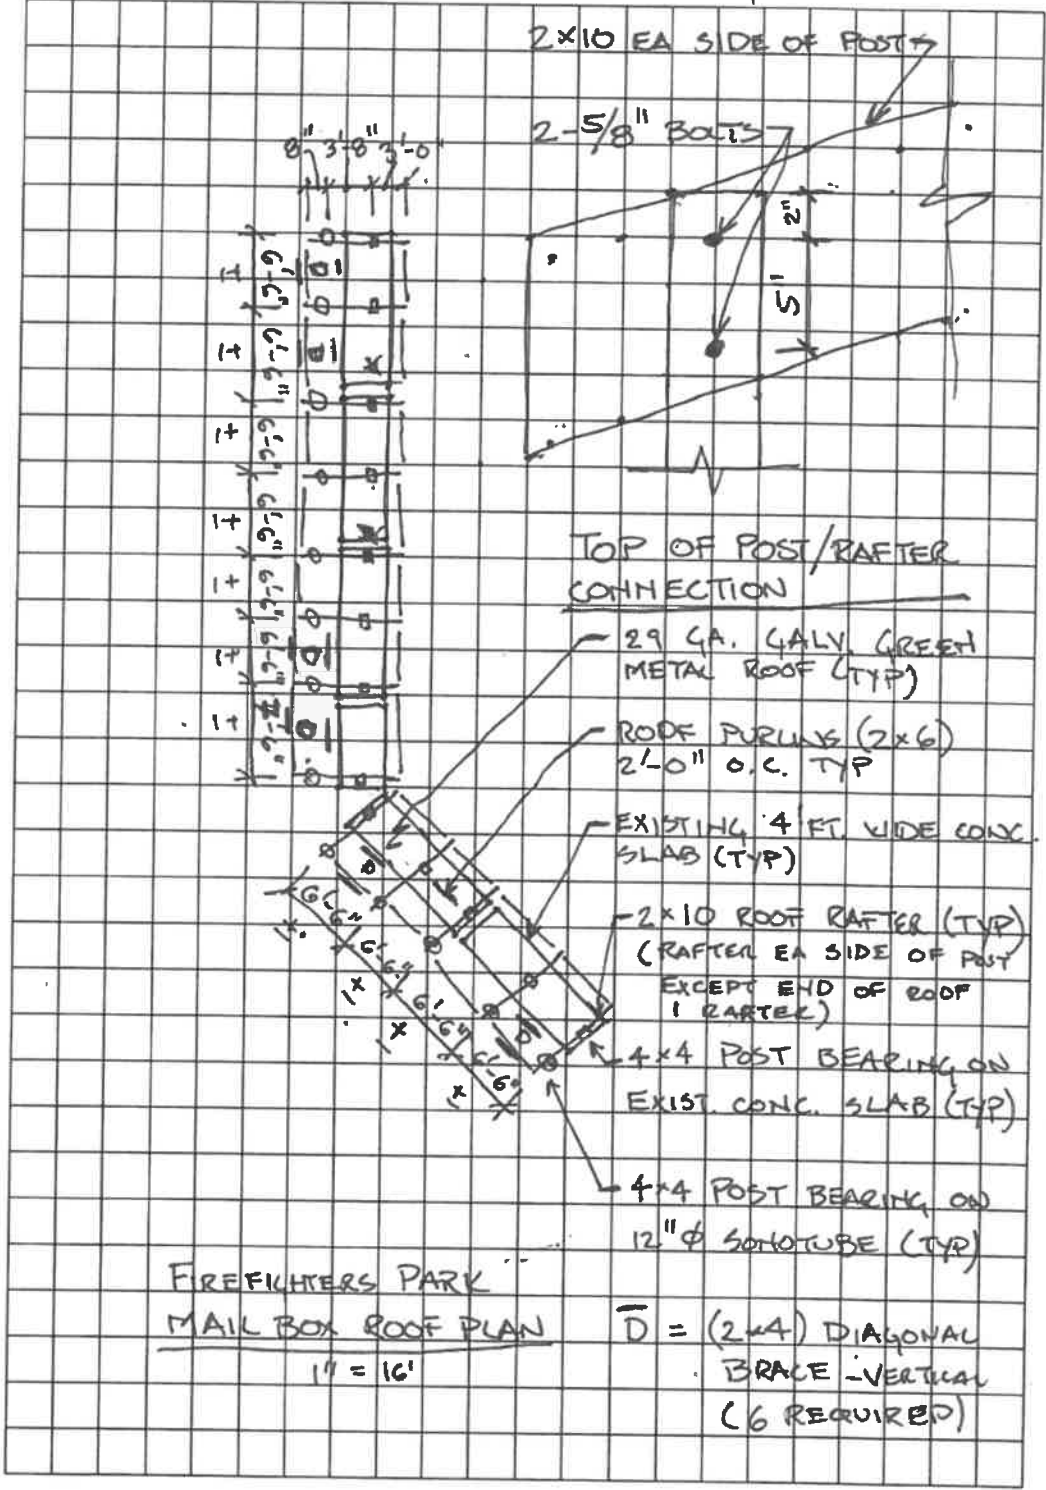 2×10 EA SIDE OF POST
2-5/8" BOLTS
8" 3'-8" 3'-0"
2"
5"
6'-6"
±
6'-6"
±
6'-6"
±
6'-6"
±
6'-6"
±
6'-6"
±
6'-6"
±
D
D
D
D
TOP OF POST/RAFTER
CONNECTION
29 GA. GALV. GREEN
METAL ROOF (TYP)
ROOF PURLINS (2×6)
2'-0" O.C. TYP
EXISTING 4 FT. WIDE CONC.
SLAB (TYP)
2×10 ROOF RAFTER (TYP)
(RAFTER EA SIDE OF POST
EXCEPT END OF ROOF
1 RAFTER)
4×4 POST BEARING ON
EXIST. CONC. SLAB (TYP)
4×4 POST BEARING ON
12"Ø SONOTUBE (TYP)
D
D
6'-6"
±
6'-6"
±
6'-6"
±
6'-6"
±
FIREFIGHTERS PARK
MAIL BOX ROOF PLAN
1" = 16'
D = (2×4) DIAGONAL
BRACE - VERTICAL
(6 REQUIRED)